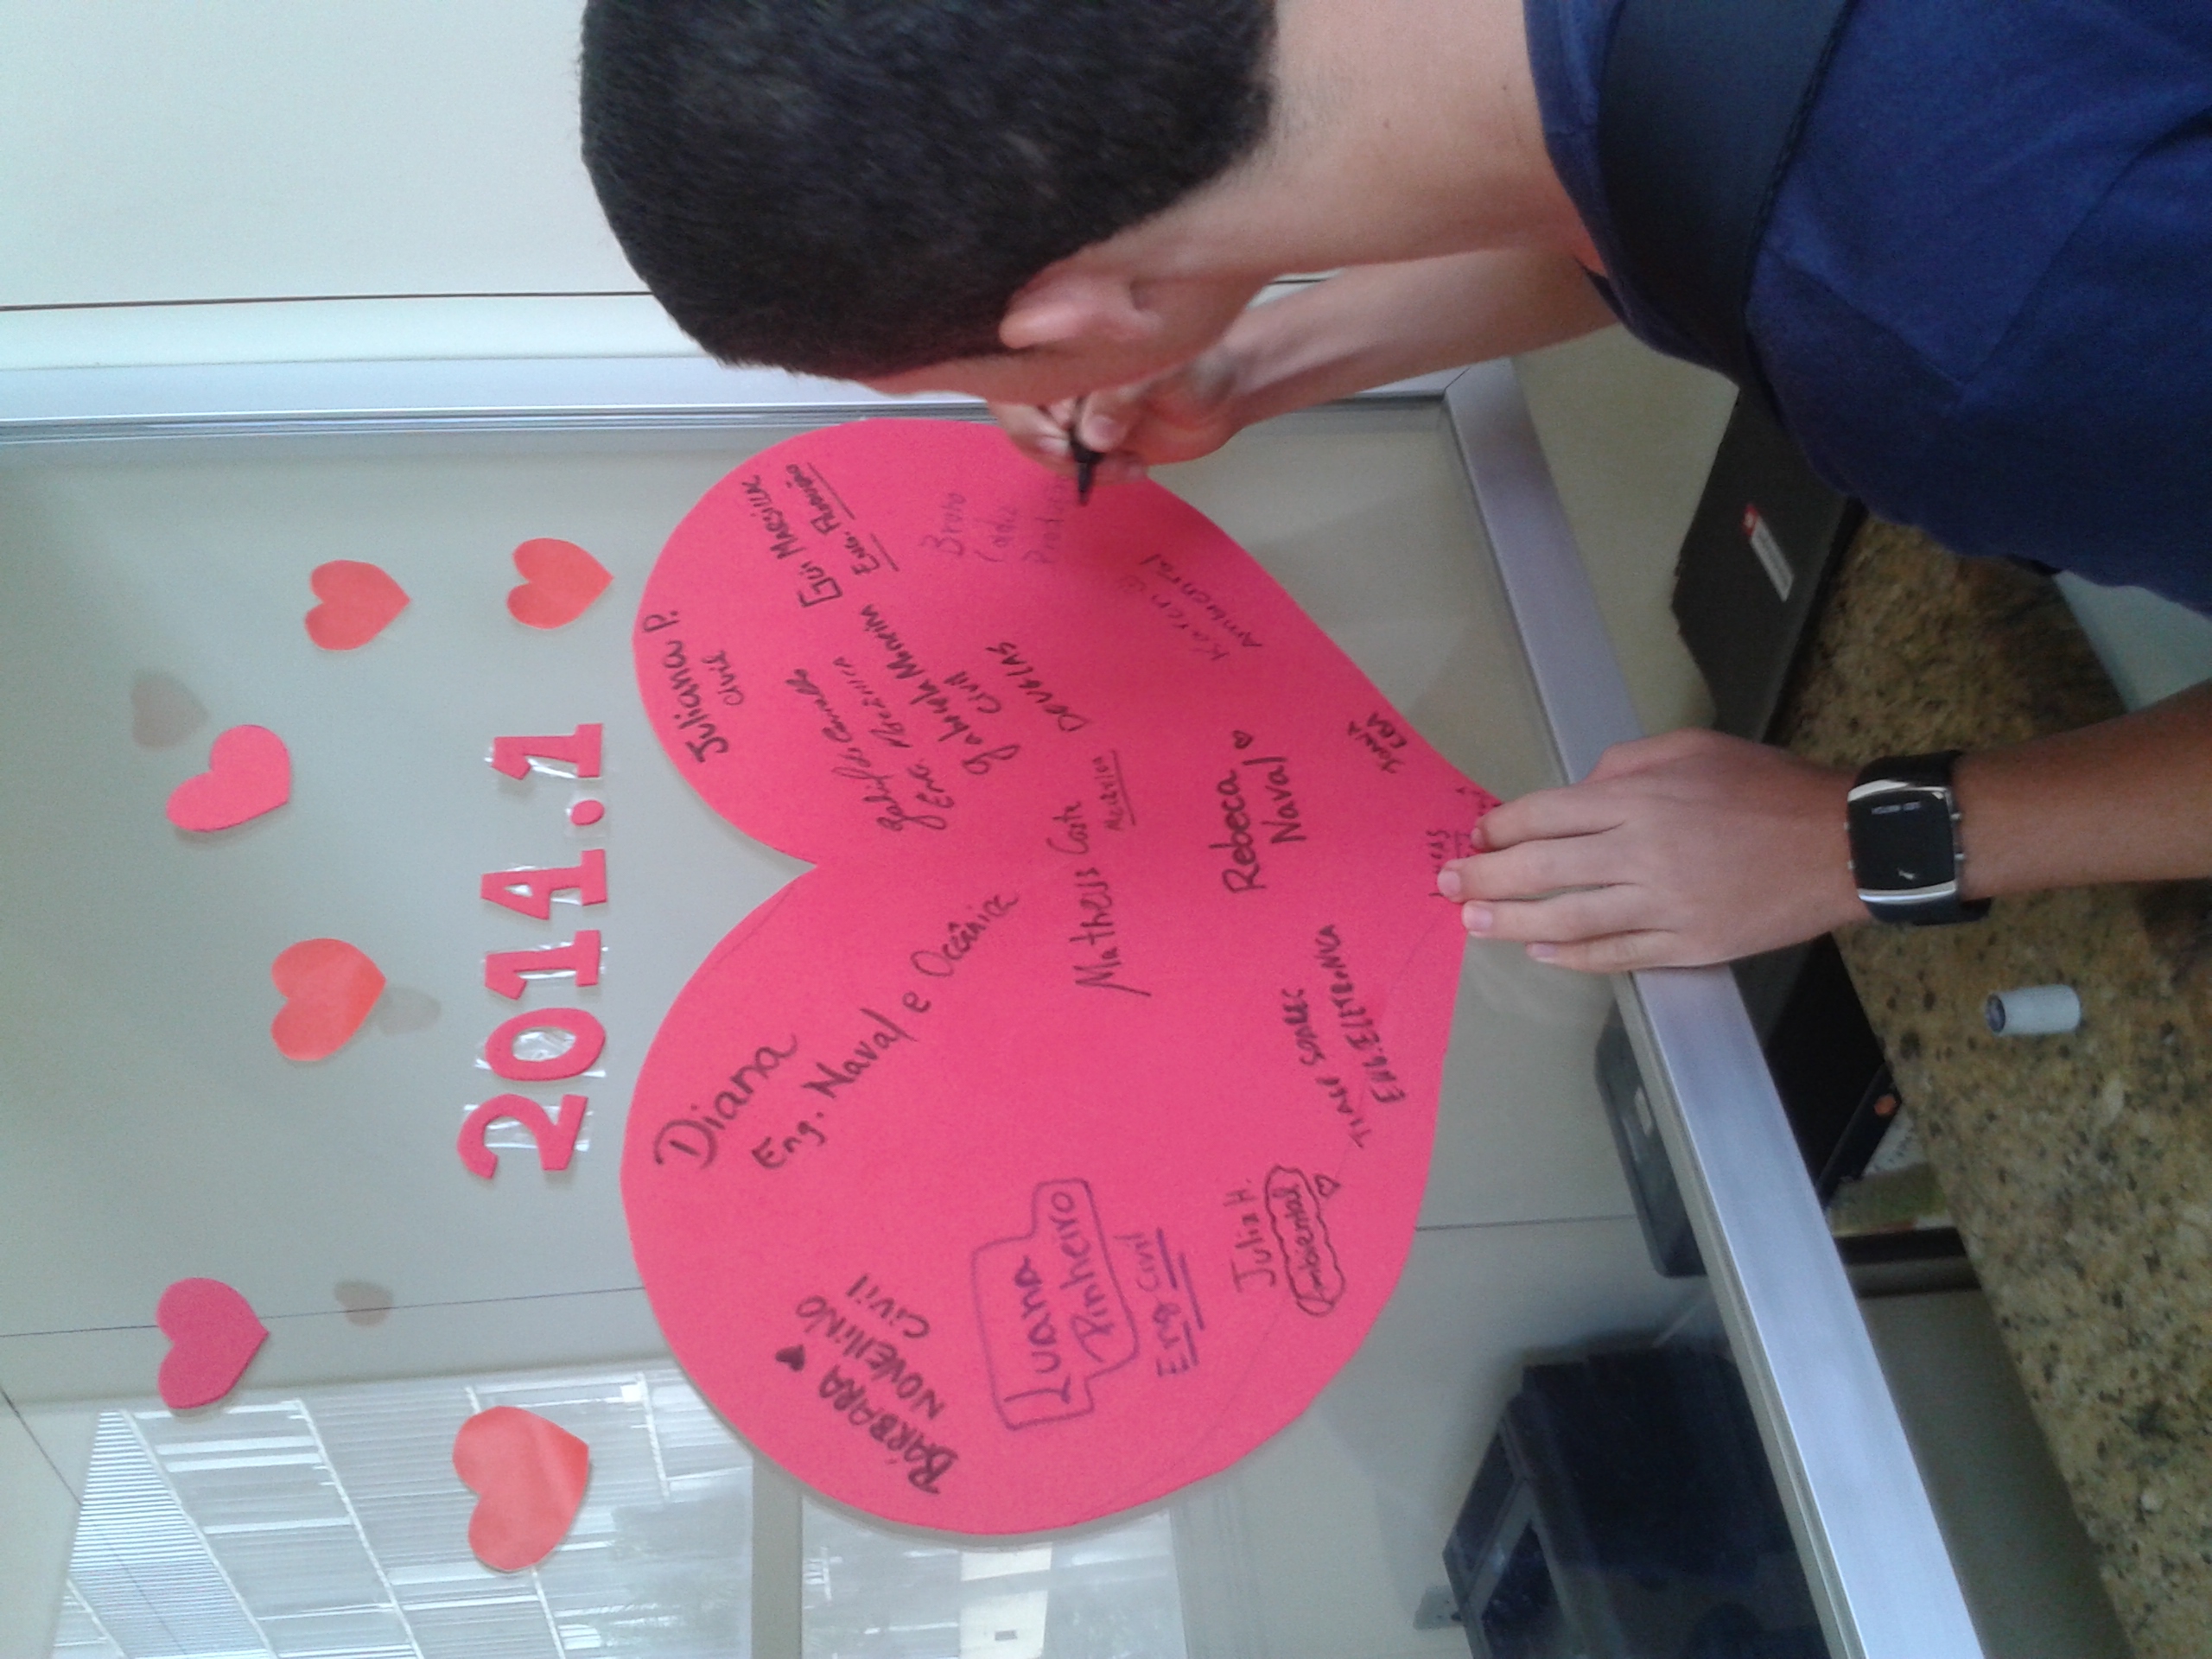 2014.1
Diana
Eng. Naval e Oceânica
Juliana P.
Civil
BÁRBARA
NOVELLINO
CIVIL
GUI MARSILLAC
ENG. PRODUÇÃO
Gabriel de Carvalho
ENG. MECÂNICA
Gabriela Moreira
Civil
Bruno
Produção
Luana
Pinheiro
Eng Civil
DOUGLAS
Matheus Costa
Mecânica
Karen
Ambiental
Julia H.
Ambiental
Rebeca
Naval
TIAGO SOARES
ENG. ELETRÔNICA
JOANA
EBA